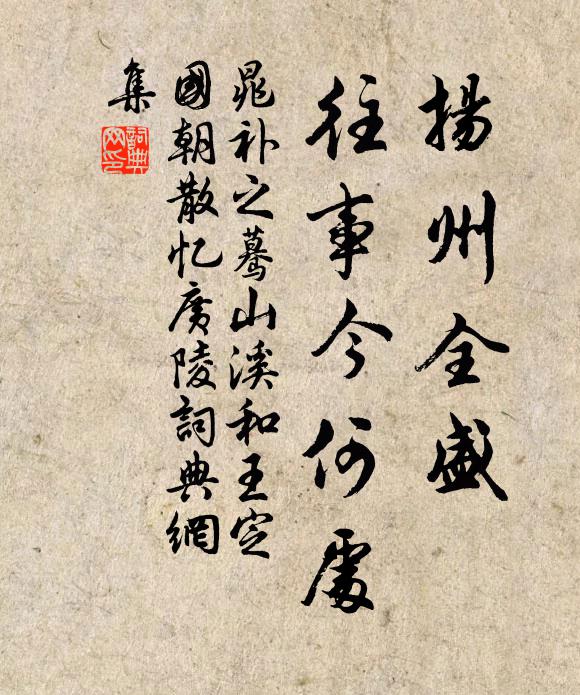 揚州全盛
往事今何處
晁补之驀山溪和王定
國朝散忆廣陵詞典網
集
詞典
网印